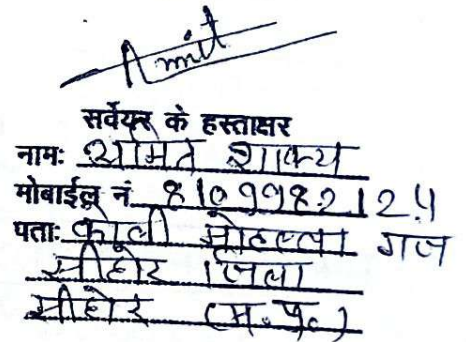 Amit
सर्वेयर के हस्ताक्षर
नामः अमित शाक्य
मोबाईल नं 8109982124
पताः कोली मोहल्ला गंज
सीहोर जिला
सीहोर (म.प्र.)